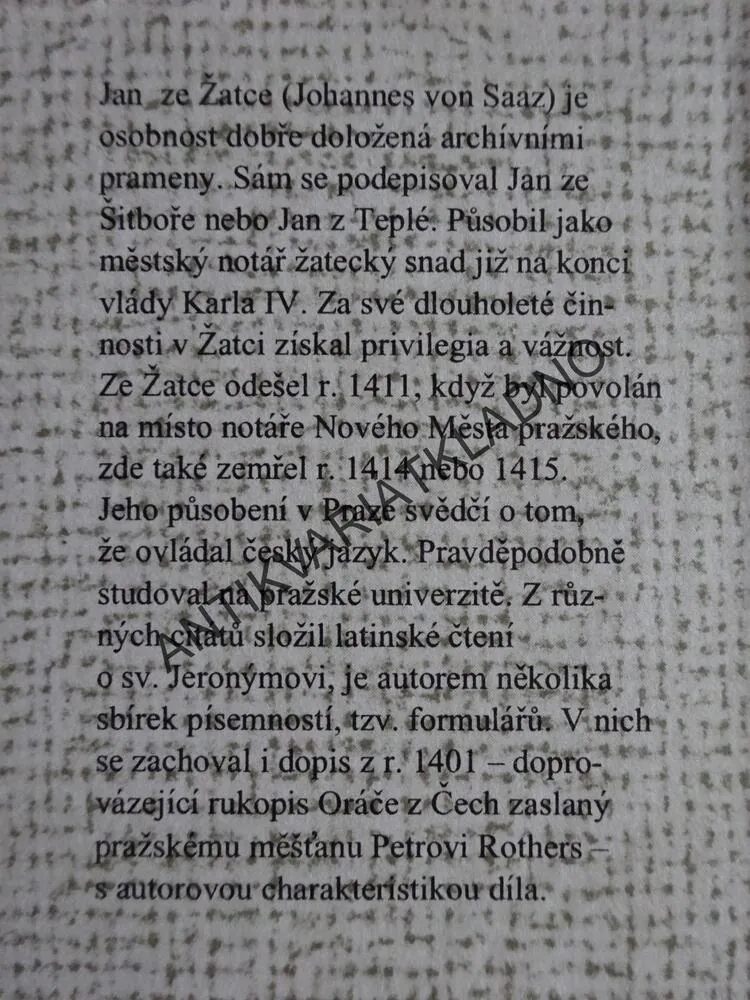 Jan ze Žatce (Johannes von Saaz) je
osobnost dobře doložená archívními
prameny. Sám se podepisoval Jan ze
Šitboře nebo Jan z Teplé. Působil jako
městský notář žatecký snad již na konci
vlády Karla IV. Za své dlouholeté čin-
nosti v Žatci získal privilegia a vážnost.
Ze Žatce odešel r. 1411, když byl povolán
na místo notáře Nového Města pražského,
zde také zemřel r. 1414 nebo 1415.
Jeho působení v Praze svědčí o tom,
že ovládal český jazyk. Pravděpodobně
studoval na pražské univerzitě. Z růz-
ných citátů složil latinské čtení
o sv. Jeronýmovi, je autorem několika
sbírek písemností, tzv. formulářů. V nich
se zachoval i dopis z r. 1401 – dopro-
vázející rukopis Oráče z Čech zaslaný
pražskému měšťanu Petrovi Rothers –
s autorovou charakteristikou díla.
ANTIKVARIATKLADNO